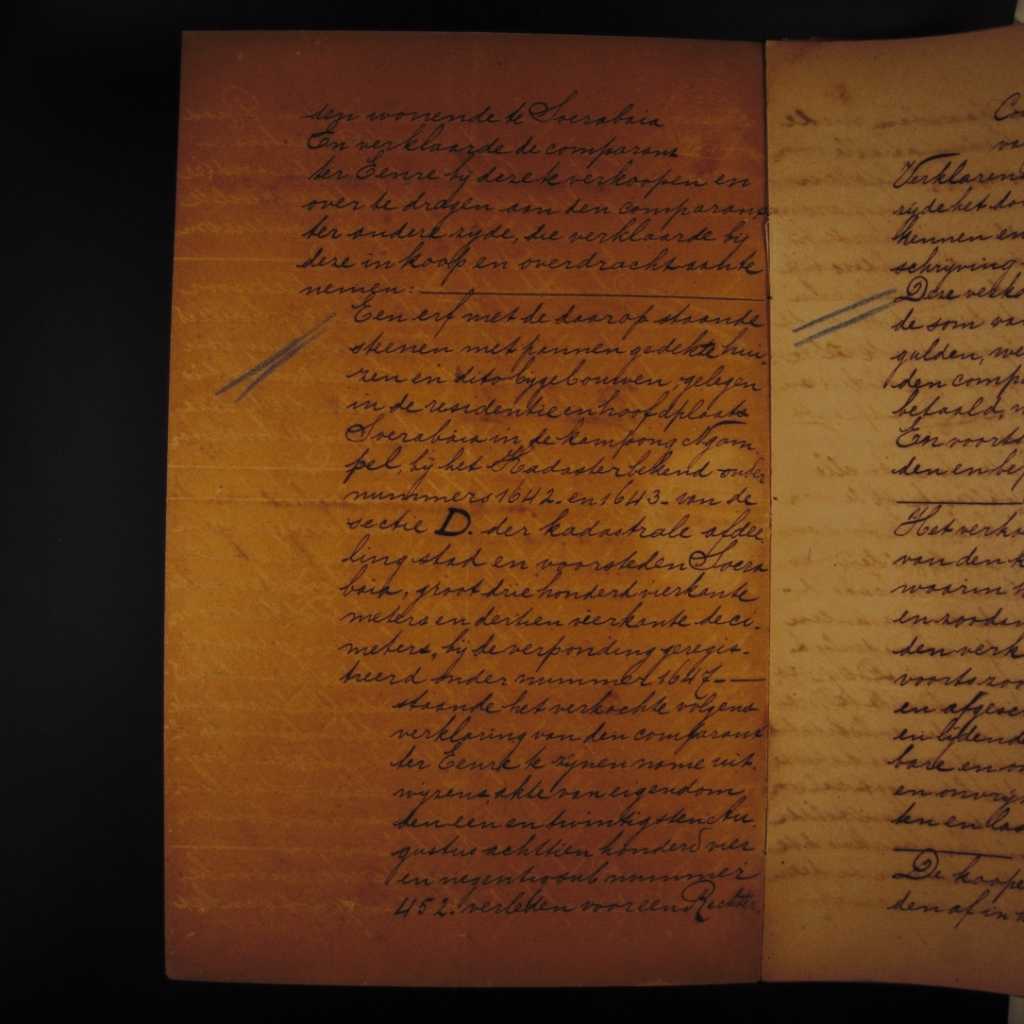 ten wonende te Soerabaia
En verklaarde de comparant
ter Eenre bij deze te verkoopen en
over te dragen aan den comparant
ter andere zijde, die verklaarde bij
deze in koop en overdracht aante
nemen:
Een erf met de daarop staande
steenen met pannen gedekte hui-
zen en dito bijgebouwen, gelegen
in de residentie en hoofdplaats
Soerabaia in de kampong Ngam-
pel, bij het Kadaster bekend onder
nummers 1642. en 1643. van de
sectie D. der kadastrale afdee
ling stad en voorsteden Soera
baia, groot drie honderd vierkante
meters en dertien vierkante deci-
meters, bij de verponding geregis-
treerd onder nummer 1647.
staande het verkochte volgens
verklaring van den comparant
ter Eenre te zijnen name uit
wijzens akte van eigendom
den een en twintigsten Au-
gustus achttien honderd vier
en negentig sub nummer
452. verleden voor een Rechter
Co
va
Verklaren
zijde het do
kennen en
schrijving
Deze verko
de som va
gulden, we
den comp
betaald, w
En voorts
den en bep
Het verko
van den k
waarin h
en zooda
den verk
voorts zoo
en afgesc
en lijdend
bare en on
en onvrij
ten en las
De koope
den af in